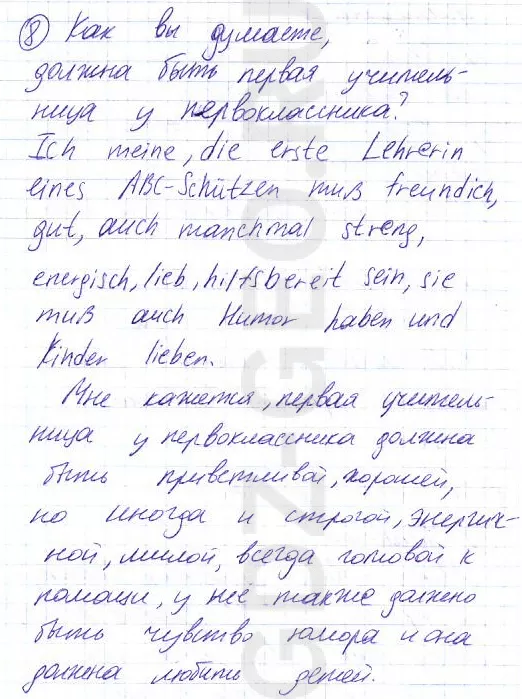 ⑧ Как вы думаете,
должна быть первая учитель-
ница у первоклассника?
Ich meine, die erste Lehrerin
eines ABC-Schützen muß freundich,
gut, auch manchmal streng,
energisch, lieb, hilfsbereit sein, sie
muß auch Humor haben und
Kinder lieben.
Мне кажется, первая учитель-
ница у первоклассника должна
быть приветливой, хорошей,
но иногда и строгой, энергич-
ной, милой, всегда готовой к
помощи, у неё также должно
быть чувство юмора и она
должна любить детей.
GDZ-GEO.RU